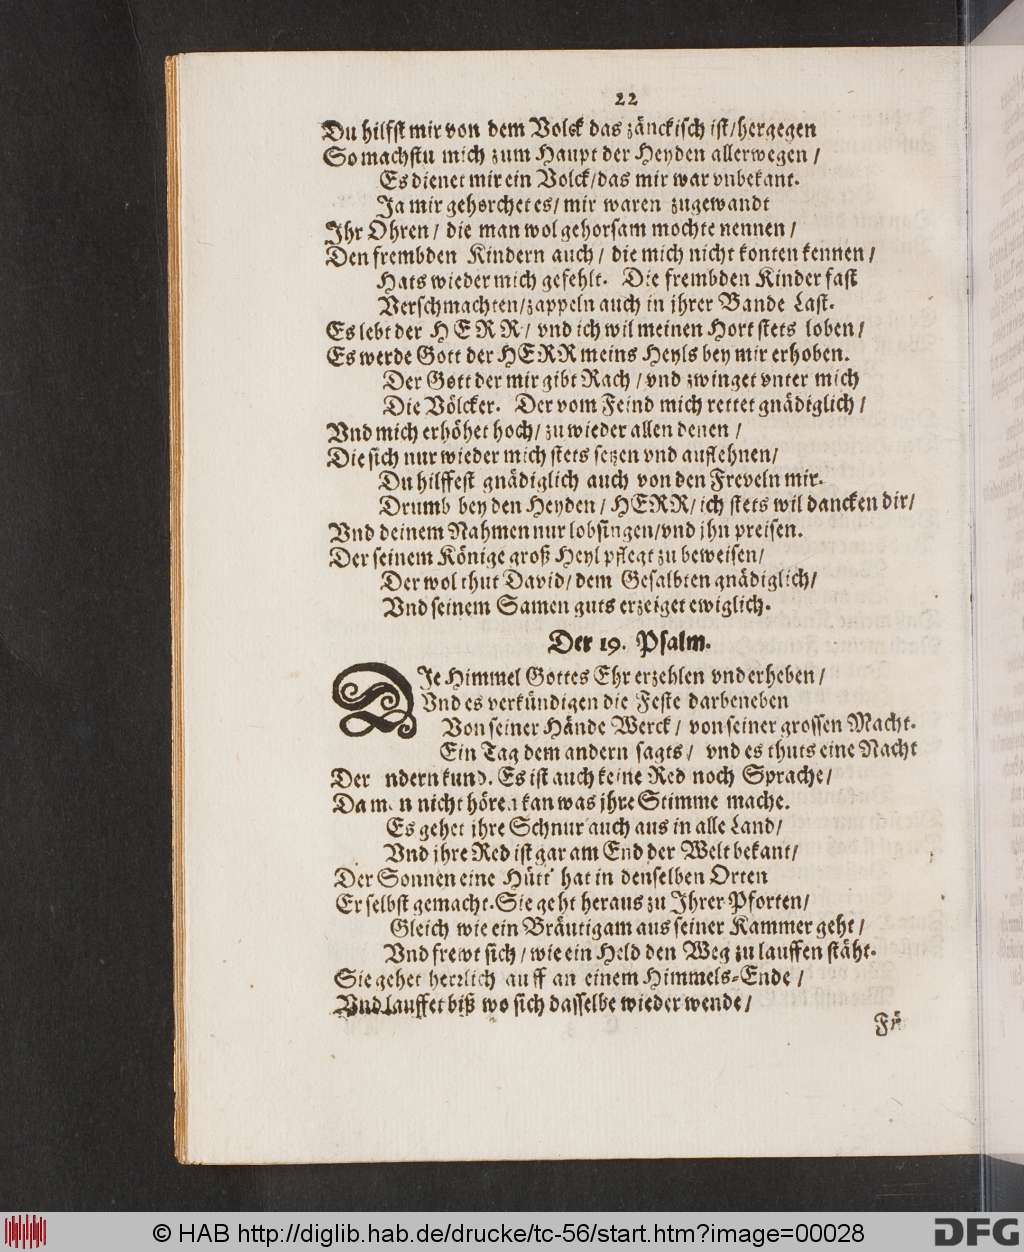 22
Du hilfst mir von dem Volck das zänckisch ist/hergegen
So machstu mich zum Haupt der Heyden allerwegen /
Es dienet mir ein Volck/das mir war vnbekant.
Ja mir gehorchet es/ mir waren zugewandt
Ihr Ohren/ die man wol gehorsam mochte nennen /
Den frembden Kindern auch / die mich nicht konten kennen /
Hats wieder mich gefehlt. Die frembden Kinder fast
Verschmachten/zappeln auch in jhrer Bande Last.
Es lebt der HERR/ vnd ich wil meinen Hort stets loben/
Es werde Gott der HERR meins Heyls bey mir erhoben.
Der Gott der mir gibt Rach / vnd zwinget vnter mich
Die Völcker. Der vom Feind mich rettet gnädiglich /
Vnd mich erhöhet hoch/ zu wieder allen denen /
Die sich nur wieder mich stets setzen vnd auflehnen/
Du hilffest gnädiglich auch von den Freveln mir.
Drumb bey den Heyden / HERR/ ich stets wil dancken dir/
Vnd deinem Nahmen nur lobsingen/vnd jhn preisen.
Der seinem Könige groß Heyl pflegt zu beweisen/
Der wol thut David/ dem Gesalbten gnädiglich/
Vnd seinem Samen guts erzeiget ewiglich.
Der 19. Psalm.
DJe Himmel Gottes Ehr erzehlen vnd erheben /
Vnd es verkündigen die Feste darbeneben
Von seiner Hände Werck / von seiner grossen Macht.
Ein Tag dem andern sagts / vnd es thuts eine Nacht
Der ndern kund. Es ist auch keine Red noch Sprache/
Da man nicht hören kan was jhre Stimme mache.
Es gehet jhre Schnur auch aus in alle Land/
Vnd jhre Red ist gar am End der Welt bekant/
Der Sonnen eine Hütt' hat in denselben Orten
Er selbst gemacht. Sie geht heraus zu Ihrer Pforten/
Gleich wie ein Bräutigam aus seiner Kammer geht /
Vnd frewt sich / wie ein Held den Weg zu lauffen stäht.
Sie gehet herrlich auff an einem Himmels-Ende /
Vnd lauffet biß wo sich dasselbe wieder wende /
Fü
© HAB http://diglib.hab.de/drucke/tc-56/start.htm?image=00028
DFG